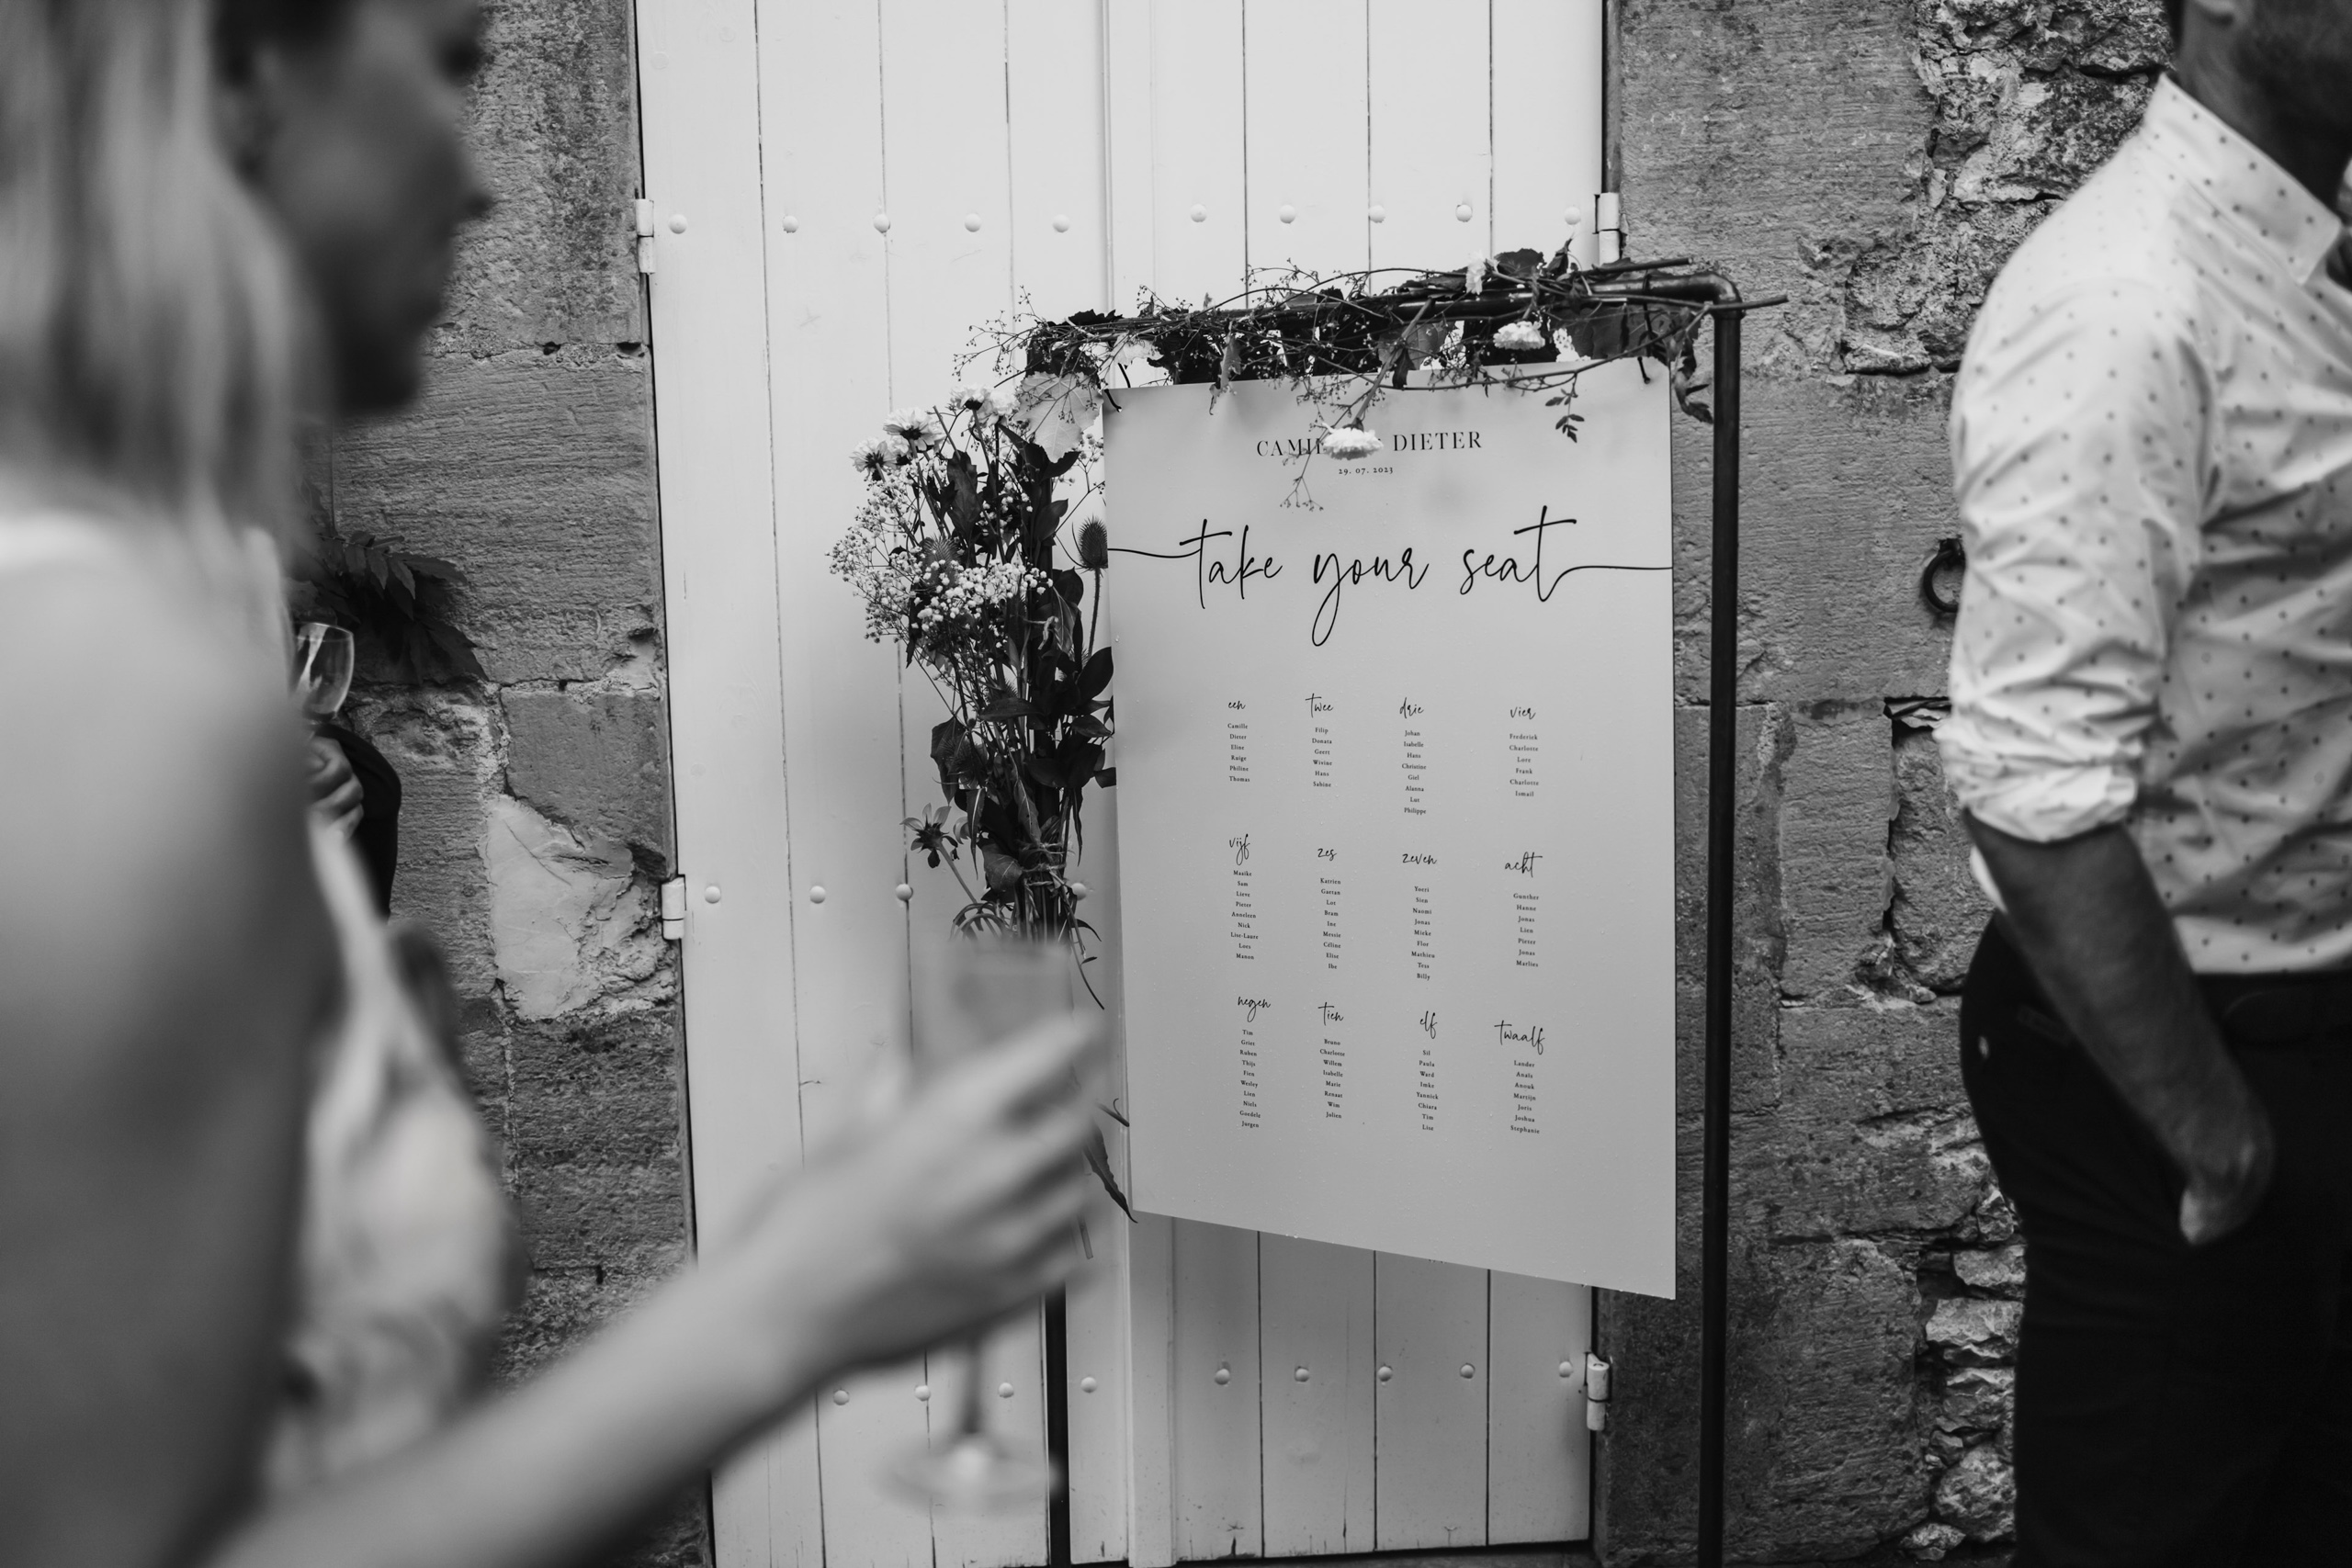 DIETER
29. 07. 2023
take your seat
een
Camille
Dieter
Eline
Philine
Thomas
twee
Filip
Donata
Geert
Wivine
Hans
Sabine
drie
Johan
Isabelle
Hans
Christine
Giel
Alanna
Lut
Philippe
vier
Frederick
Charlotte
Lore
Frank
Charlotte
Ismail
vijf
Maaike
Sam
Lieve
Pieter
Annelien
Nick
Lise-Laure
Loes
Manon
zes
Katrien
Gaetan
Lot
Bram
Ine
Messie
Céline
Elise
Ibe
zeven
Youri
Sien
Naomi
Jonas
Mieke
Flor
Mathieu
Tess
Billy
acht
Gunther
Hanne
Jonas
Lien
Pieter
Jonas
Marlies
negen
Tim
Gries
Ruben
Thijs
Fien
Wesley
Lien
Niels
Goedele
Jurgen
tien
Bruno
Charlotte
Willem
Isabelle
Marie
Renaat
Wim
Jolien
elf
Sil
Paula
Ward
Imke
Yannick
Chiara
Tim
Lise
twaalf
Lander
Anaïs
Anouk
Martijn
Joris
Joshua
Stephanie